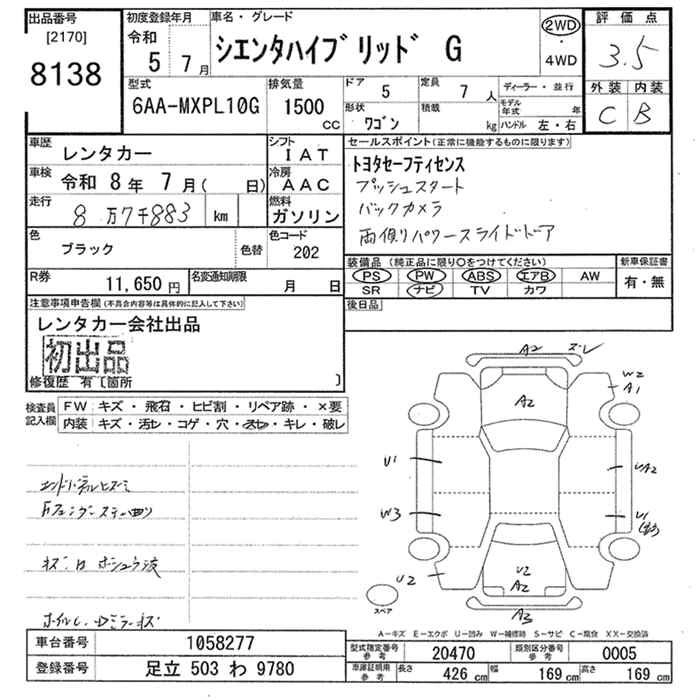 出品番号
[2170]
8138
初度登録年月
令和
5 7月
車名・グレード
シエンタハイブリッド G
2WD
・
4WD
評価点
3.5
外装 内装
C B
型式
6AA-MXPL10G
排気量
1500
cc
ドア 5
定員 7 人
形状 ワゴン
積載 kg
ディーラー・並行
モデル年式 年
ハンドル 左・右
車歴 レンタカー
車検 令和 8年 7月( 日)
走行 8万7千883 km
シフト IAT
冷房 AAC
燃料 ガソリン
色 ブラック
色替
色コード 202
R券 11,650円
名変通知期限 月 日
セールスポイント(正常に機能するものに限ります)
トヨタセーフティセンス
プッシュスタート
バックカメラ
両側パワースライドドア
装備品(純正品に限り○をつけてください)
PS PW ABS エアB AW
SR ナビ TV カワ
新車保証書
有・無
後日品
注意事項申告欄(不具合内容等は具体的に記入して下さい)
レンタカー会社出品
初出品
修復歴 有〔箇所 〕
検査員記入欄
FW キズ・飛石・ヒビ割・リペア跡・×要
内装 キズ・汚レ・コゲ・穴・スレ・キレ・破レ
A2 ズレ
W2
A1
A2
U1
UA2
W3
U1
U2
U2
A2
A3
スペア
A-キズ E-エクボ U-凹み W-補修跡 S-サビ C-腐食 XX-交換済
車台番号 1058277
登録番号 足立 503 わ 9780
型式指定番号 参考 20470
類別区分番号 参考 0005
車庫証明用 参考 長さ 426 cm 幅 169 cm 高さ 169 cm